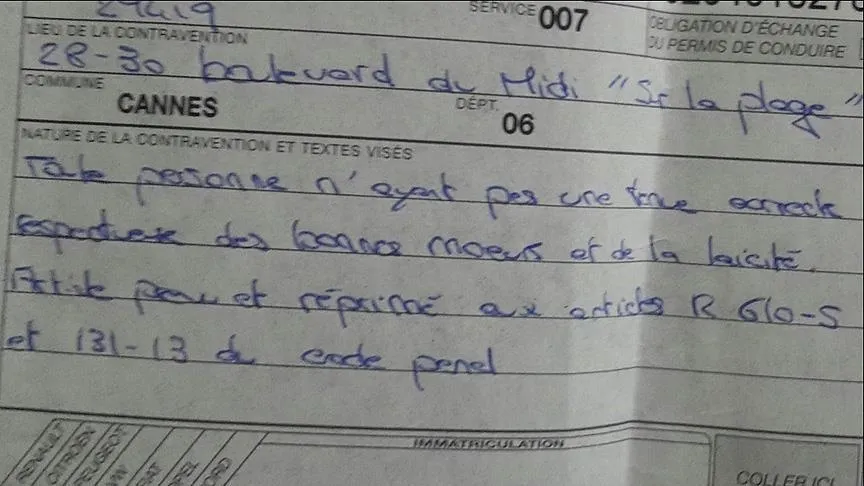 29419
SERVICE 007
OBLIGATION D'ÉCHANGE
DU PERMIS DE CONDUIRE
LIEU DE LA CONTRAVENTION
28-30 boulevard du Midi "Sur la plage"
COMMUNE CANNES DÉPT. 06
NATURE DE LA CONTRAVENTION ET TEXTES VISÉS
Toute personne n'ayant pas une tenue correcte
respectueuse des bonnes moeurs et de la laïcité.
Article prévu et réprimé aux articles R 610-5
et 131-13 du code penal
IMMATRICULATION
RENAULT
CITROEN
PEUGEOT
COLLER ICI